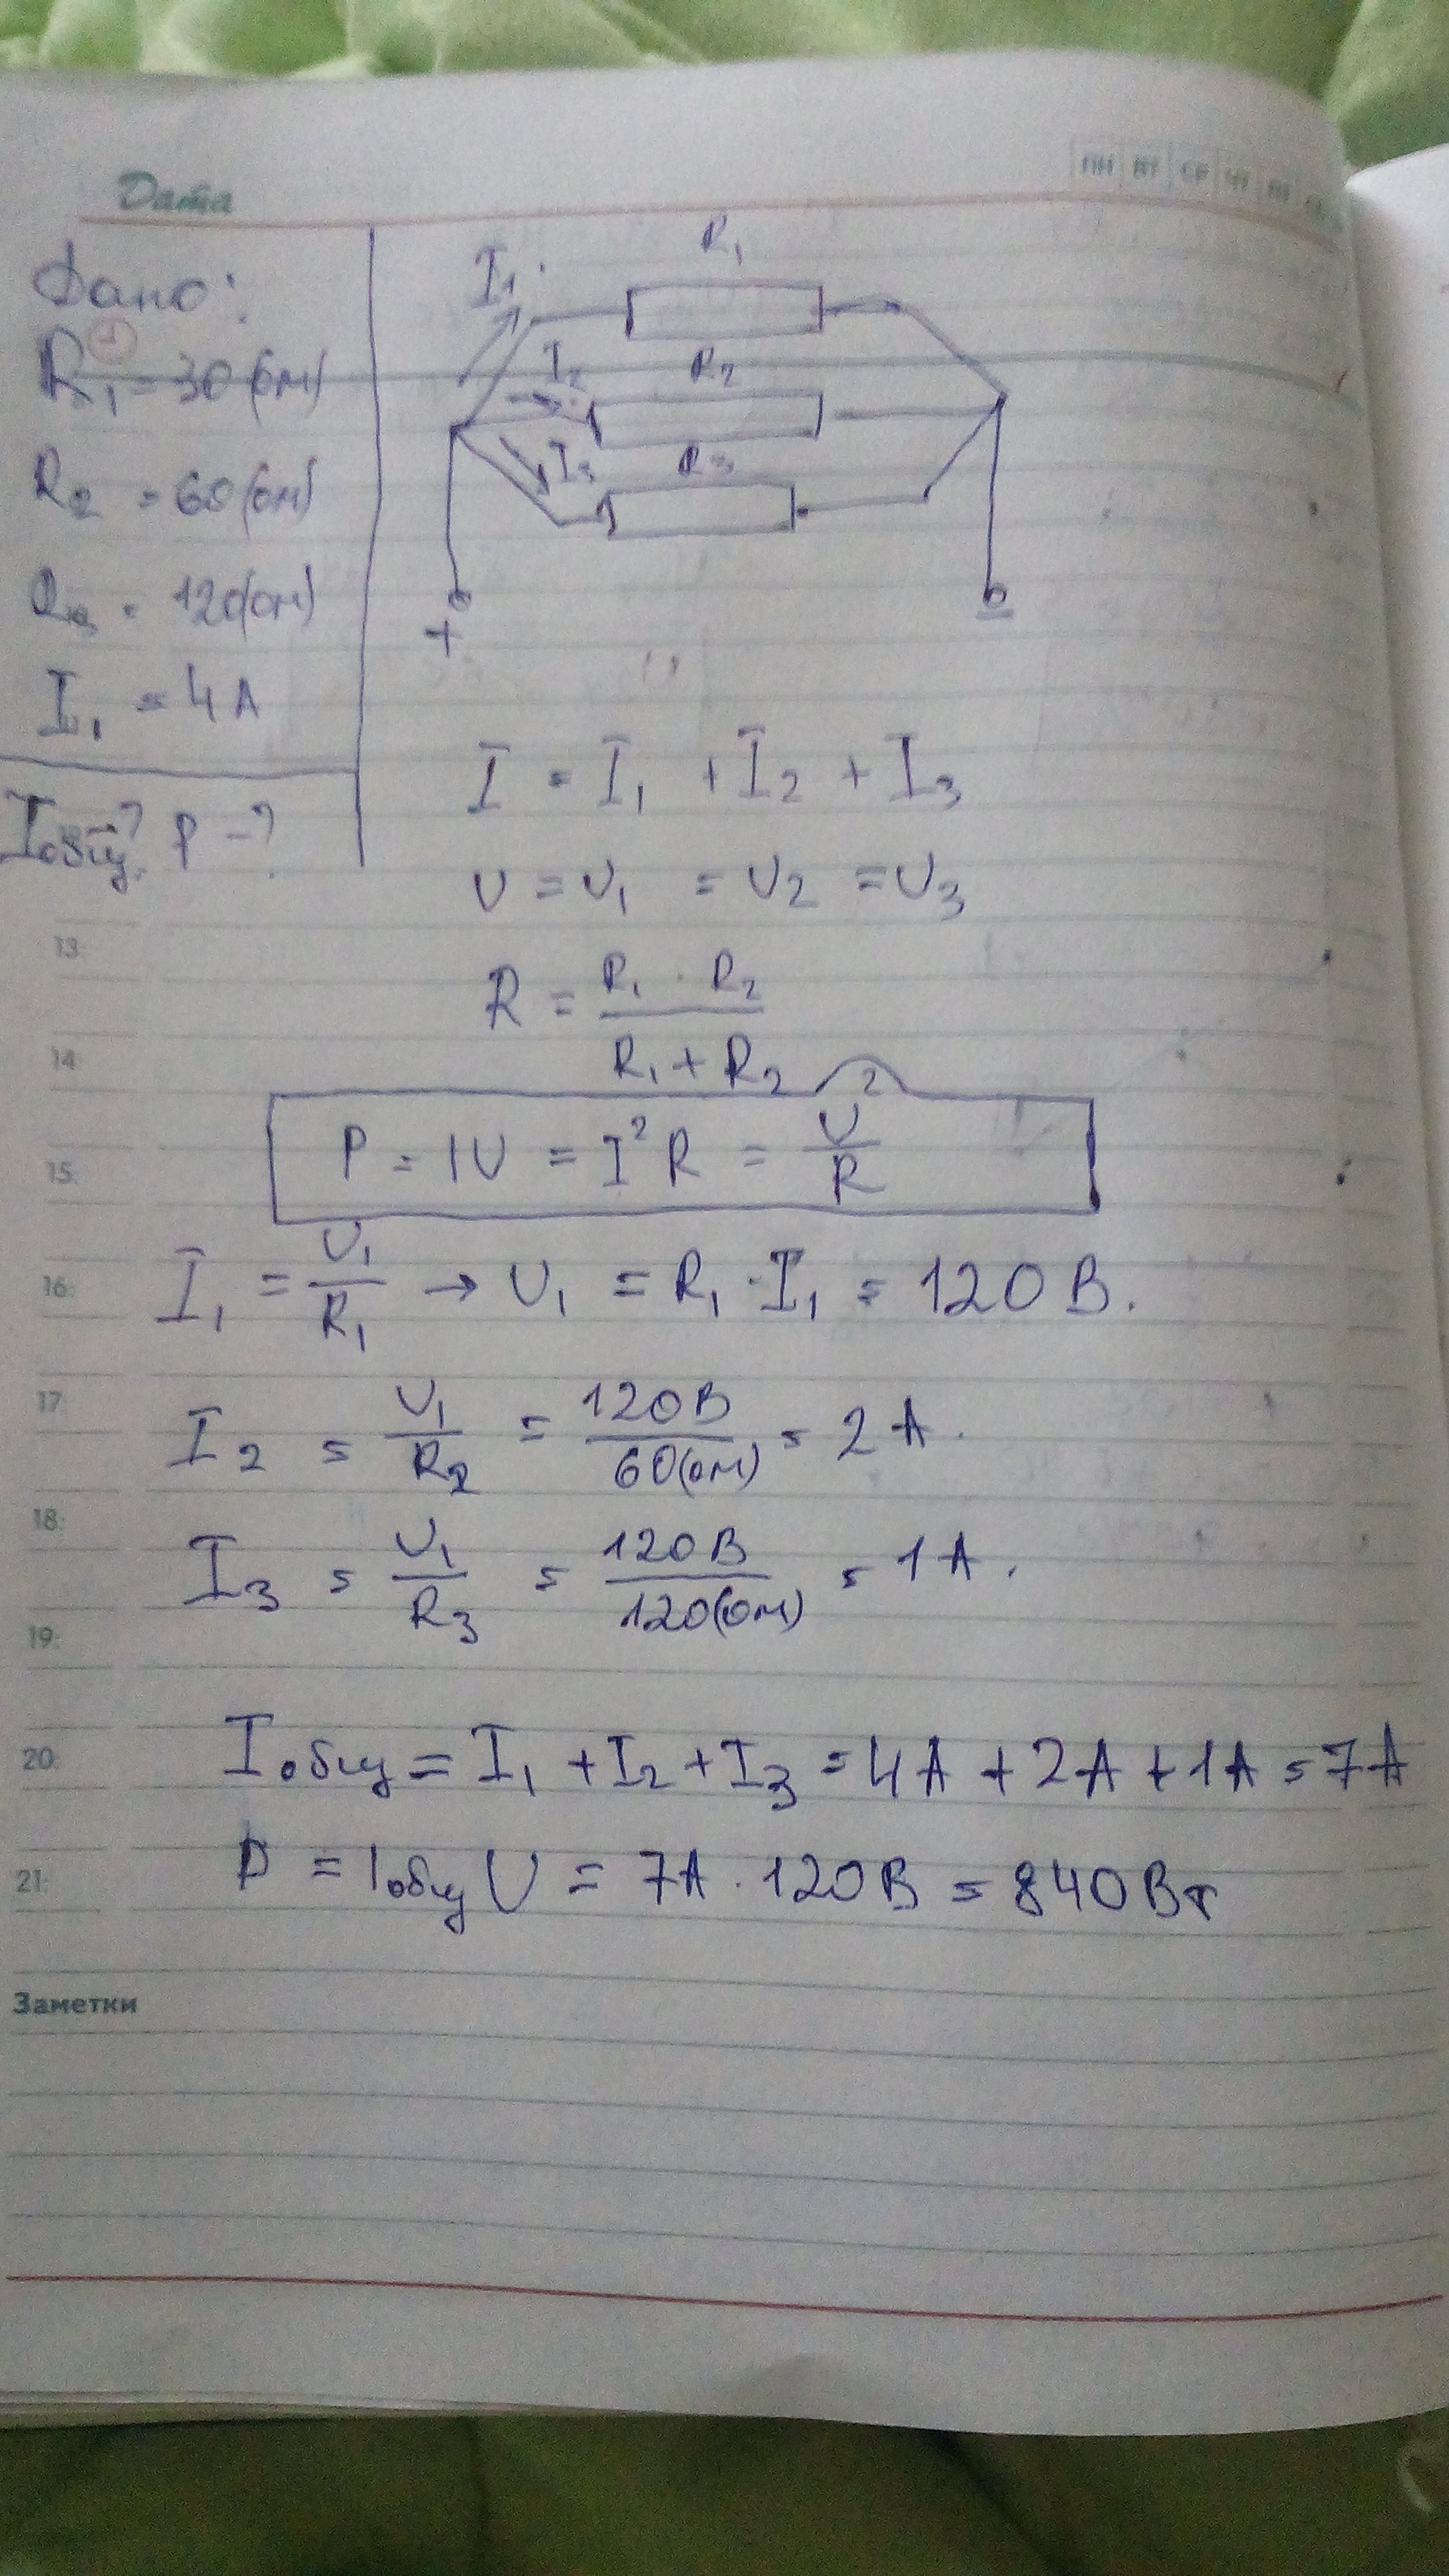 Дата
ПН ВТ СР ЧТ
Дано:
R₁ = 30 (ом)
R₂ = 60 (ом)
R₃ = 120 (ом)
I₁ = 4 А
Iобщ -? P -?
I₁
R₁
I₂
R₂
I₃
R₃
+
-
I = I₁ + I₂ + I₃
U = U₁ = U₂ = U₃
13:
R = R₁ · R₂ / R₁ + R₂
14:
P = IU = I²R = U² / R
15:
I₁ = U₁ / R₁ → U₁ = R₁ · I₁ = 120 В.
16:
17:
I₂ = U₁ / R₂ = 120 В / 60 (ом) = 2 А.
18:
I₃ = U₁ / R₃ = 120 В / 120 (ом) = 1 А.
19:
20:
Iобщ = I₁ + I₂ + I₃ = 4 А + 2 А + 1 А = 7 А
21:
P = Iобщ U = 7 А · 120 В = 840 Вт
Заметки